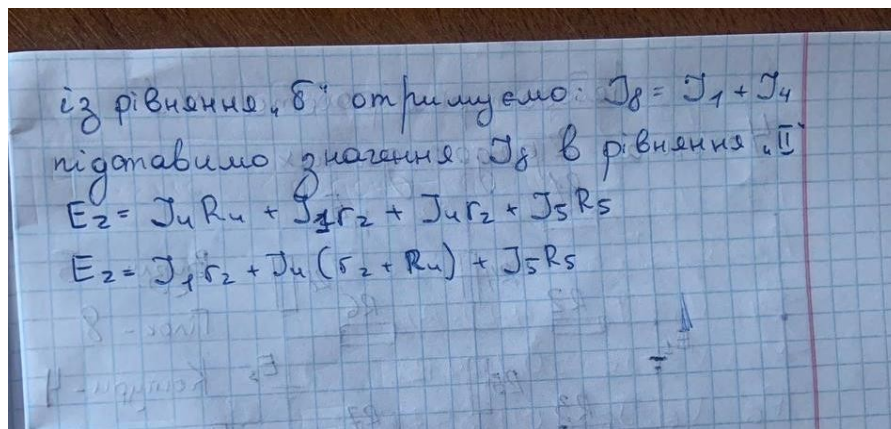 із рівняння „б“ отримуємо: I8 = I1 + I4
підставимо значення I8 в рівняння „II“
E2 = I4R4 + I1r2 + I4r2 + I5R5
E2 = I1r2 + I4(r2 + R4) + I5R5